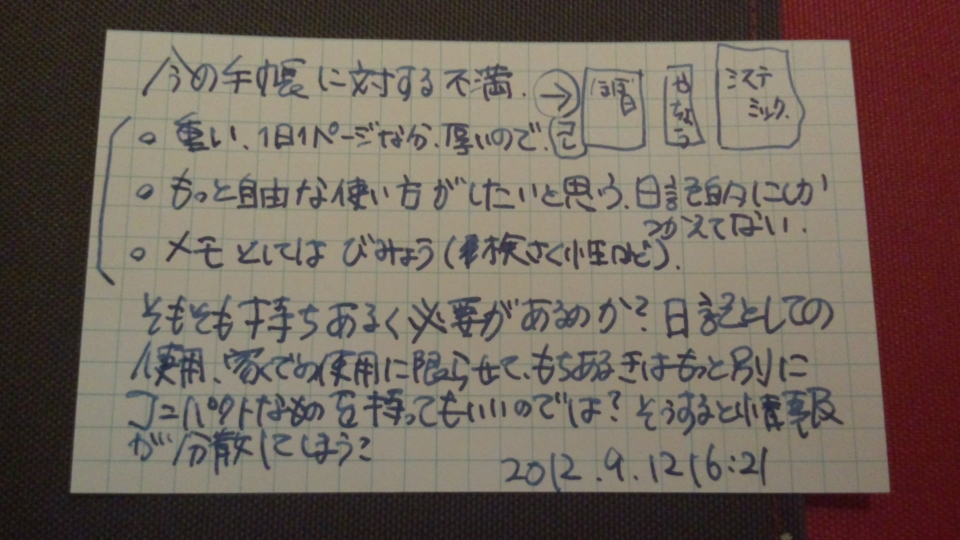 今の手帳に対する不満. →
ほぼ日
やちょう
システ
ミック.
・重い、1日1ページなか、厚いので.
・もっと自由な使い方がしたいと思う. 日記的にしか
つかえてない.
・メモとしては びみょう (検さく性など).
そもそも持ちあるく必要があるのか? 日記としての
使用、家での使用に限らせて、もちあるきはもっと別に
コンパクトなものを持ってもいいのでは? そうすると情報
が分散してしまう?
2012.9.12 16:21